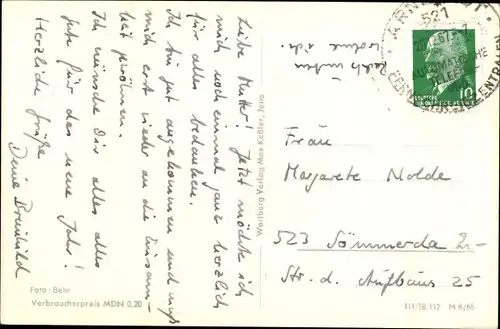 Liebe Mutter! Jetzt möchte ich
mich noch einmal ganz herzlich
für alles bedanken.
Ich bin gut angekommen und muß
mich erst wieder an die Einsam-
keit gewöhnen.
Ich wünsche Dir alles alles
Gute für das neue Jahr!
Herzliche Grüße
Deine Brunhild
Foto: Behr
Verbraucherpreis MDN 0,20
Warburg Verlag Max Keßler, Jena
unten
wohne ich.
ARNSTADT
521
10
Frau
Margarete Nolde
523 Sömmerda
Str. d. Aufbaus 25
III/18/117 M 6/66